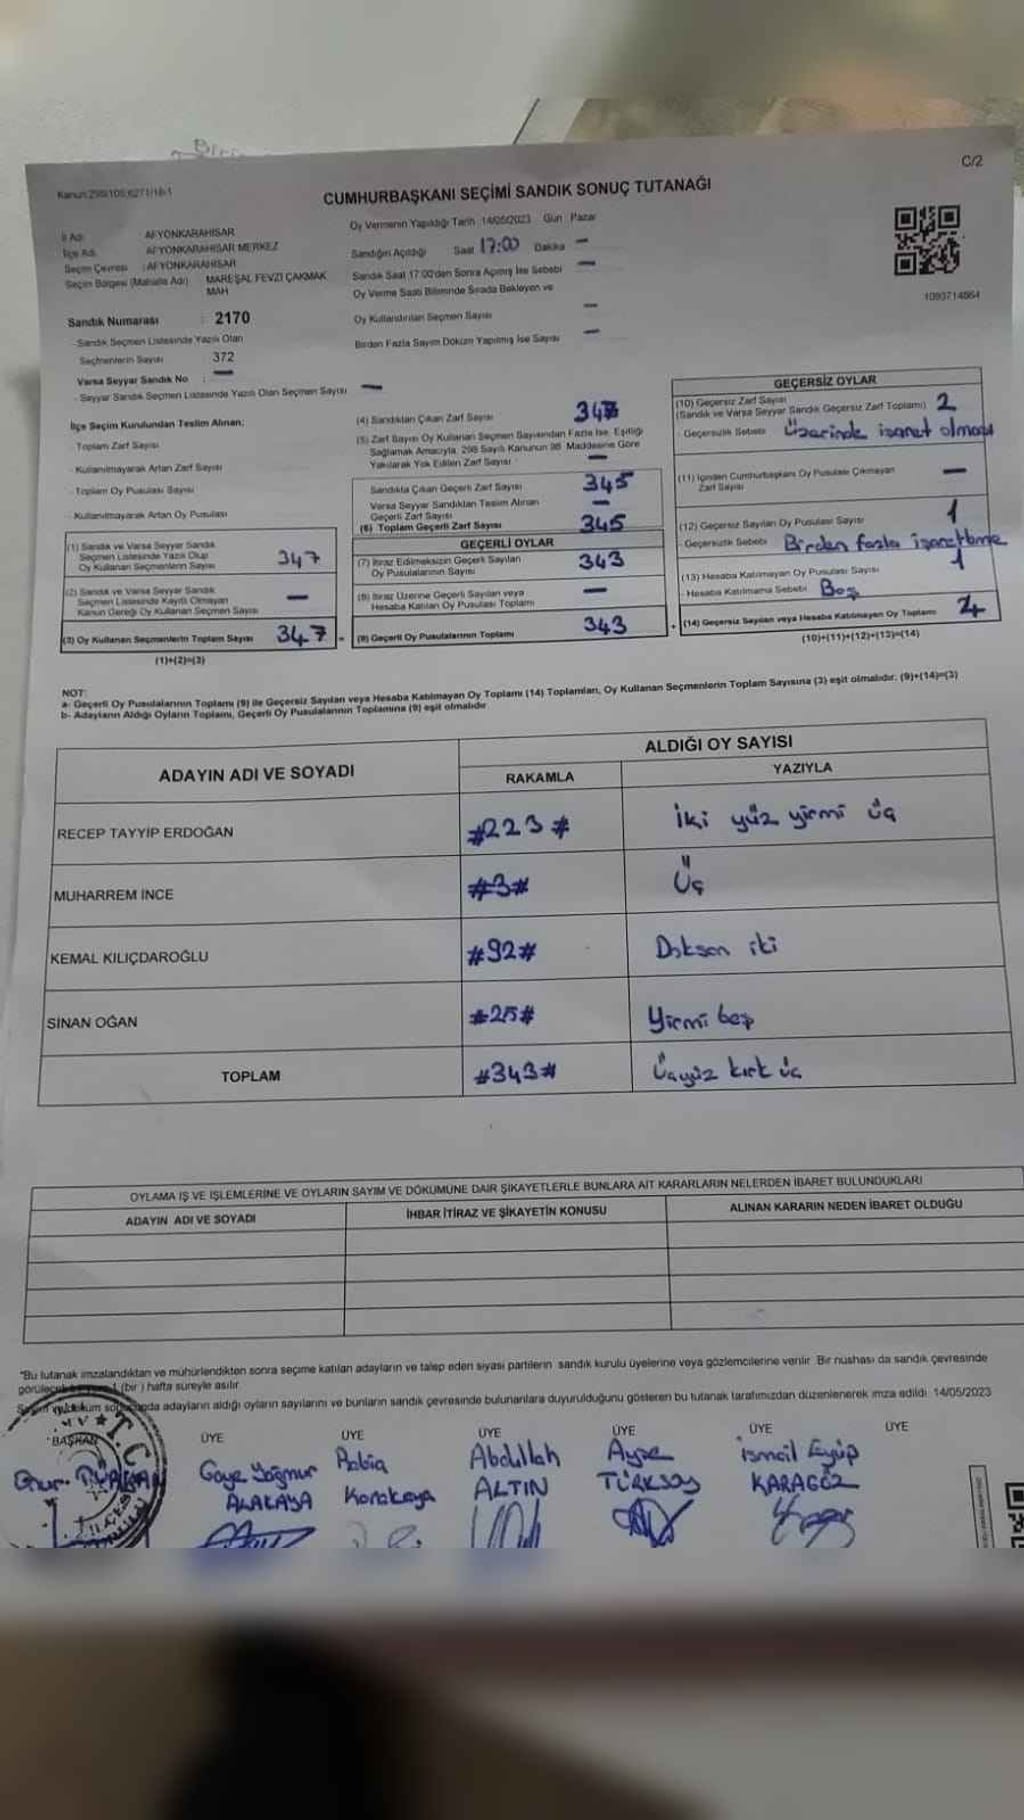 C/2
CUMHURBAŞKANI SEÇİMİ SANDIK SONUÇ TUTANAĞI
İl Adı AFYONKARAHİSAR
İlçe Adı AFYONKARAHİSAR MERKEZ
Seçim Çevresi : AFYONKARAHİSAR
Seçim Bölgesi (Mahalle Adı) MAREŞAL FEVZİ ÇAKMAK MAH
Sandık Numarası : 2170
- Sandık Seçmen Listesinde Yazılı Olan
Seçmenlerin Sayısı 372
Varsa Seyyar Sandık No : —
- Seyyar Sandık Seçmen Listesinde Yazılı Olan Seçmen Sayısı —
Oy Vermenin Yapıldığı Tarih 14/05/2023 Gün Pazar
Sandığın Açıldığı Saat 17:00 Dakika —
Sandık Saat 17:00'den Sonra Açılmış İse Sebebi —
Oy Verme Saati Bitiminde Sırada Bekleyen ve
Oy Kullandırılan Seçmen Sayısı —
Birden Fazla Sayım Döküm Yapılmış İse Sayısı —
1093714864
İlçe Seçim Kurulundan Teslim Alınan;
- Toplam Zarf Sayısı
- Kullanılmayarak Artan Zarf Sayısı
- Toplam Oy Pusulası Sayısı
- Kullanılmayarak Artan Oy Pusulası
(1) Sandık ve Varsa Seyyar Sandık
Seçmen Listesinde Yazılı Olup
Oy Kullanan Seçmenlerin Sayısı 347
(2) Sandık ve Varsa Seyyar Sandık
Seçmen Listesinde Kayıtlı Olmayan
Kanun Gereği Oy Kullanan Seçmen Sayısı —
(3) Oy Kullanan Seçmenlerin Toplam Sayısı 347
(1)+(2)=(3)
(4) Sandıktan Çıkan Zarf Sayısı 347
(5) Zarf Sayısı Oy Kullanan Seçmen Sayısından Fazla İse, Eşitliği
Sağlamak Amacıyla, 298 Sayılı Kanunun 98. Maddesine Göre
Yakılarak Yok Edilen Zarf Sayısı —
Sandıkta Çıkan Geçerli Zarf Sayısı 345
Varsa Seyyar Sandıktan Teslim Alınan
Geçerli Zarf Sayısı —
(6) Toplam Geçerli Zarf Sayısı 345
GEÇERLİ OYLAR
(7) İtiraz Edilmeksizin Geçerli Sayılan
Oy Pusulalarının Sayısı 343
(8) İtiraz Üzerine Geçerli Sayılan veya
Hesaba Katılan Oy Pusulası Toplamı —
(9) Geçerli Oy Pusulalarının Toplamı 343
GEÇERSİZ OYLAR
(10) Geçersiz Zarf Sayısı
(Sandık ve Varsa Seyyar Sandık Geçersiz Zarf Toplamı) 2
- Geçersizlik Sebebi Üzerinde işaret olması
(11) İçinden Cumhurbaşkanı Oy Pusulası Çıkmayan
Zarf Sayısı —
(12) Geçersiz Sayılan Oy Pusulası Sayısı 1
- Geçersizlik Sebebi Birden fazla işaretleme
(13) Hesaba Katılmayan Oy Pusulası Sayısı 1
- Hesaba Katılmama Sebebi Boş
(14) Geçersiz Sayılan veya Hesaba Katılmayan Oy Toplamı 4
(10)+(11)+(12)+(13)=(14)
NOT:
a- Geçerli Oy Pusulalarının Toplamı (9) ile Geçersiz Sayılan veya Hesaba Katılmayan Oy Toplamı (14) Toplamları, Oy Kullanan Seçmenlerin Toplam Sayısına (3) eşit olmalıdır. (9)+(14)=(3)
b- Adayların Aldığı Oyların Toplamı, Geçerli Oy Pusulalarının Toplamına (9) eşit olmalıdır.
ADAYIN ADI VE SOYADI ALDIĞI OY SAYISI
RAKAMLA YAZIYLA
RECEP TAYYİP ERDOĞAN #223# İki yüz yirmi üç
MUHARREM İNCE #3# Üç
KEMAL KILIÇDAROĞLU #92# Doksan iki
SİNAN OĞAN #25# Yirmi beş
TOPLAM #343# Üçyüz kırk üç
OYLAMA İŞ VE İŞLEMLERİNE VE OYLARIN SAYIM VE DÖKÜMÜNE DAİR ŞİKAYETLERLE BUNLARA AİT KARARLARIN NELERDEN İBARET BULUNDUKLARI
ADAYIN ADI VE SOYADI İHBAR İTİRAZ VE ŞİKAYETİN KONUSU ALINAN KARARIN NEDEN İBARET OLDUĞU
*Bu tutanak imzalandıktan ve mühürlendikten sonra seçime katılan adayların ve talep eden siyasi partilerin sandık kurulu üyelerine veya gözlemcilerine verilir. Bir nüshası da sandık çevresinde
1 (bir) hafta süreyle asılır.
adayların aldığı oyların sayılarını ve bunların sandık çevresinde bulunanlara duyurulduğunu gösteren bu tutanak tarafımızdan düzenlenerek imza edildi. 14/05/2023
BAŞKAN ÜYE ÜYE ÜYE ÜYE ÜYE ÜYE
Onur Gaye Yağmur Rabia Abdullah Ayşe İsmail Eyüp
ALAKAYA Karakaya ALTIN TÜRKSOY KARAGÖZ
T.C.